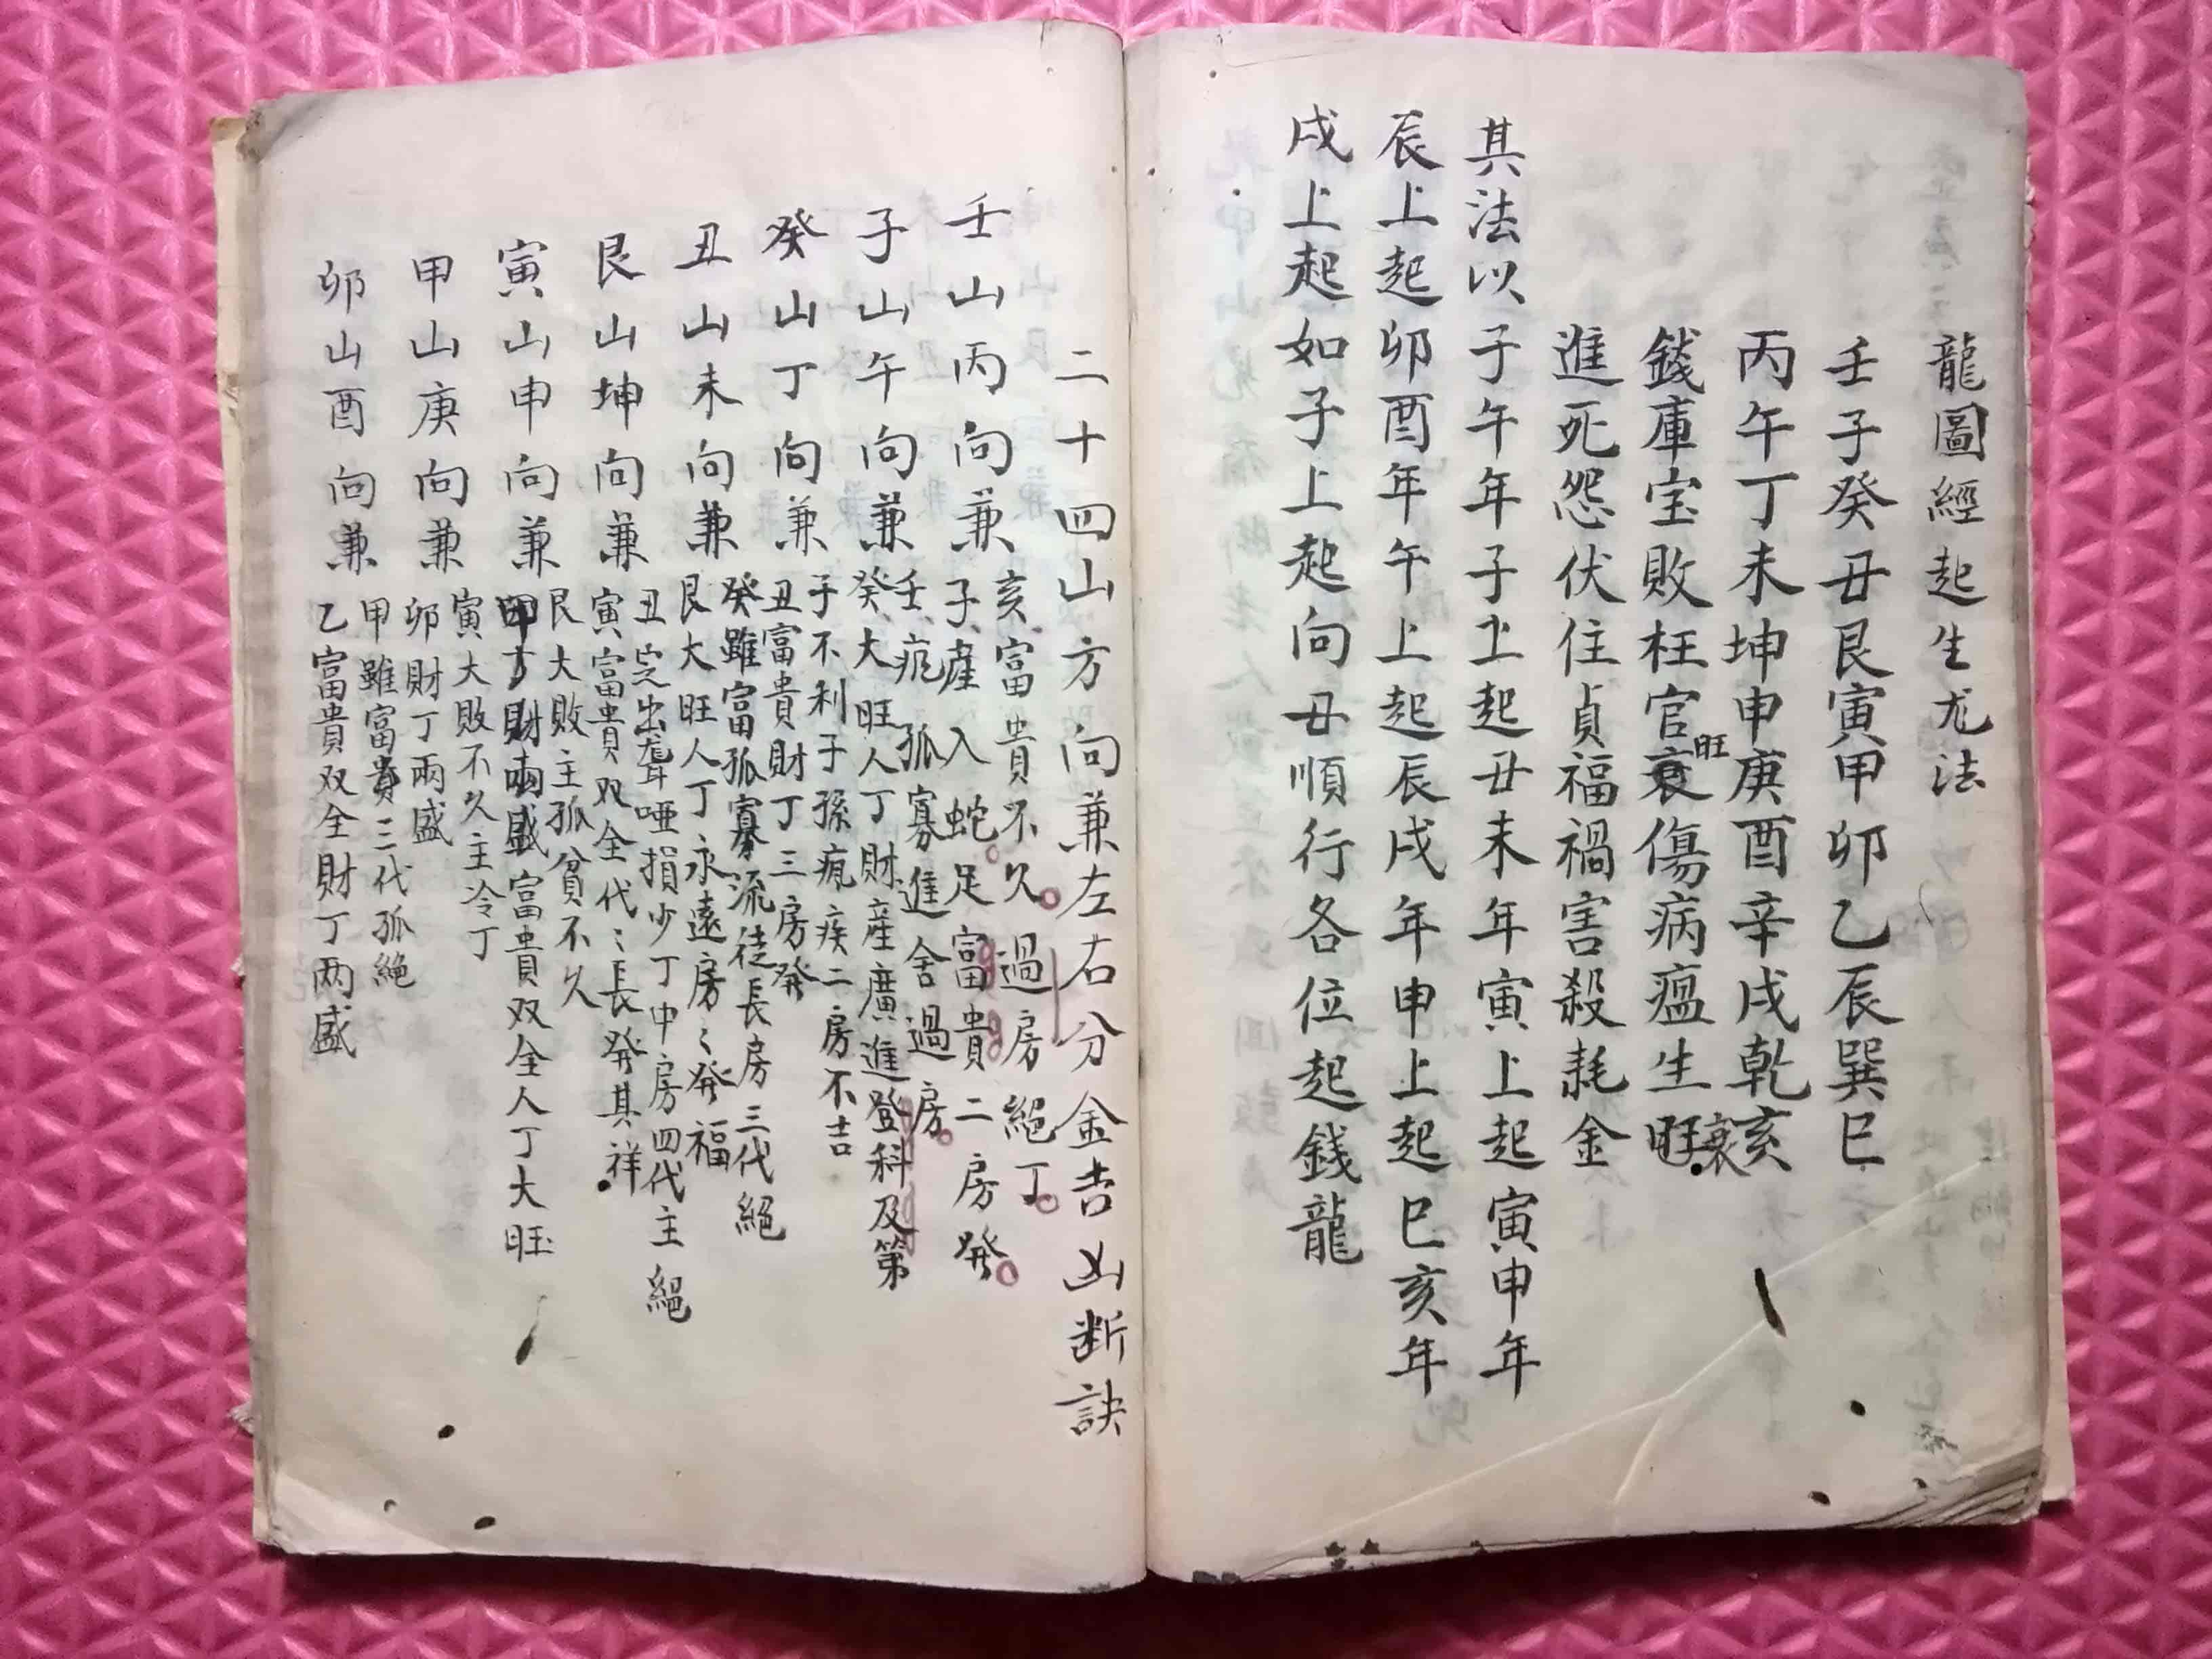 龍圖經起生尤法
壬子癸丑艮寅甲卯乙辰巽巳
丙午丁未坤申庚酉辛戌乾亥
錢庫宝敗枉官衰傷病瘟生旺
旺
衰
進死怨伏住貞福禍害殺耗金
其法以子午年子上起丑未年寅上起寅申年
辰上起卯酉年午上起辰戌年申上起巳亥年
戌上起如子上起向丑順行各位起錢龍
二十四山方向兼左右分金吉凶断訣
壬山丙向兼
亥富貴不久過房絕丁
子產入蛇足富貴二房發
子山午向兼
壬疤孤寡進舍過房
癸大旺人丁財産廣進登科及第
癸山丁向兼
子不利子孫瘋疾二房不吉
丑富貴財丁三房發
丑山未向兼
癸雖富孤寡流徒長房三代絕
艮大旺人丁永遠房〻發福
艮山坤向兼
丑定出聾啞損少丁中房四代主絕
寅富貴双全代〻長發其祥
寅山申向兼
艮大敗主孤貧不久
甲丁財兩盛富貴双全人丁大旺
甲山庚向兼
寅大敗不久主冷丁
卯財丁兩盛
卯山酉向兼
甲雖富貴三代孤絕
乙富貴双全財丁两盛